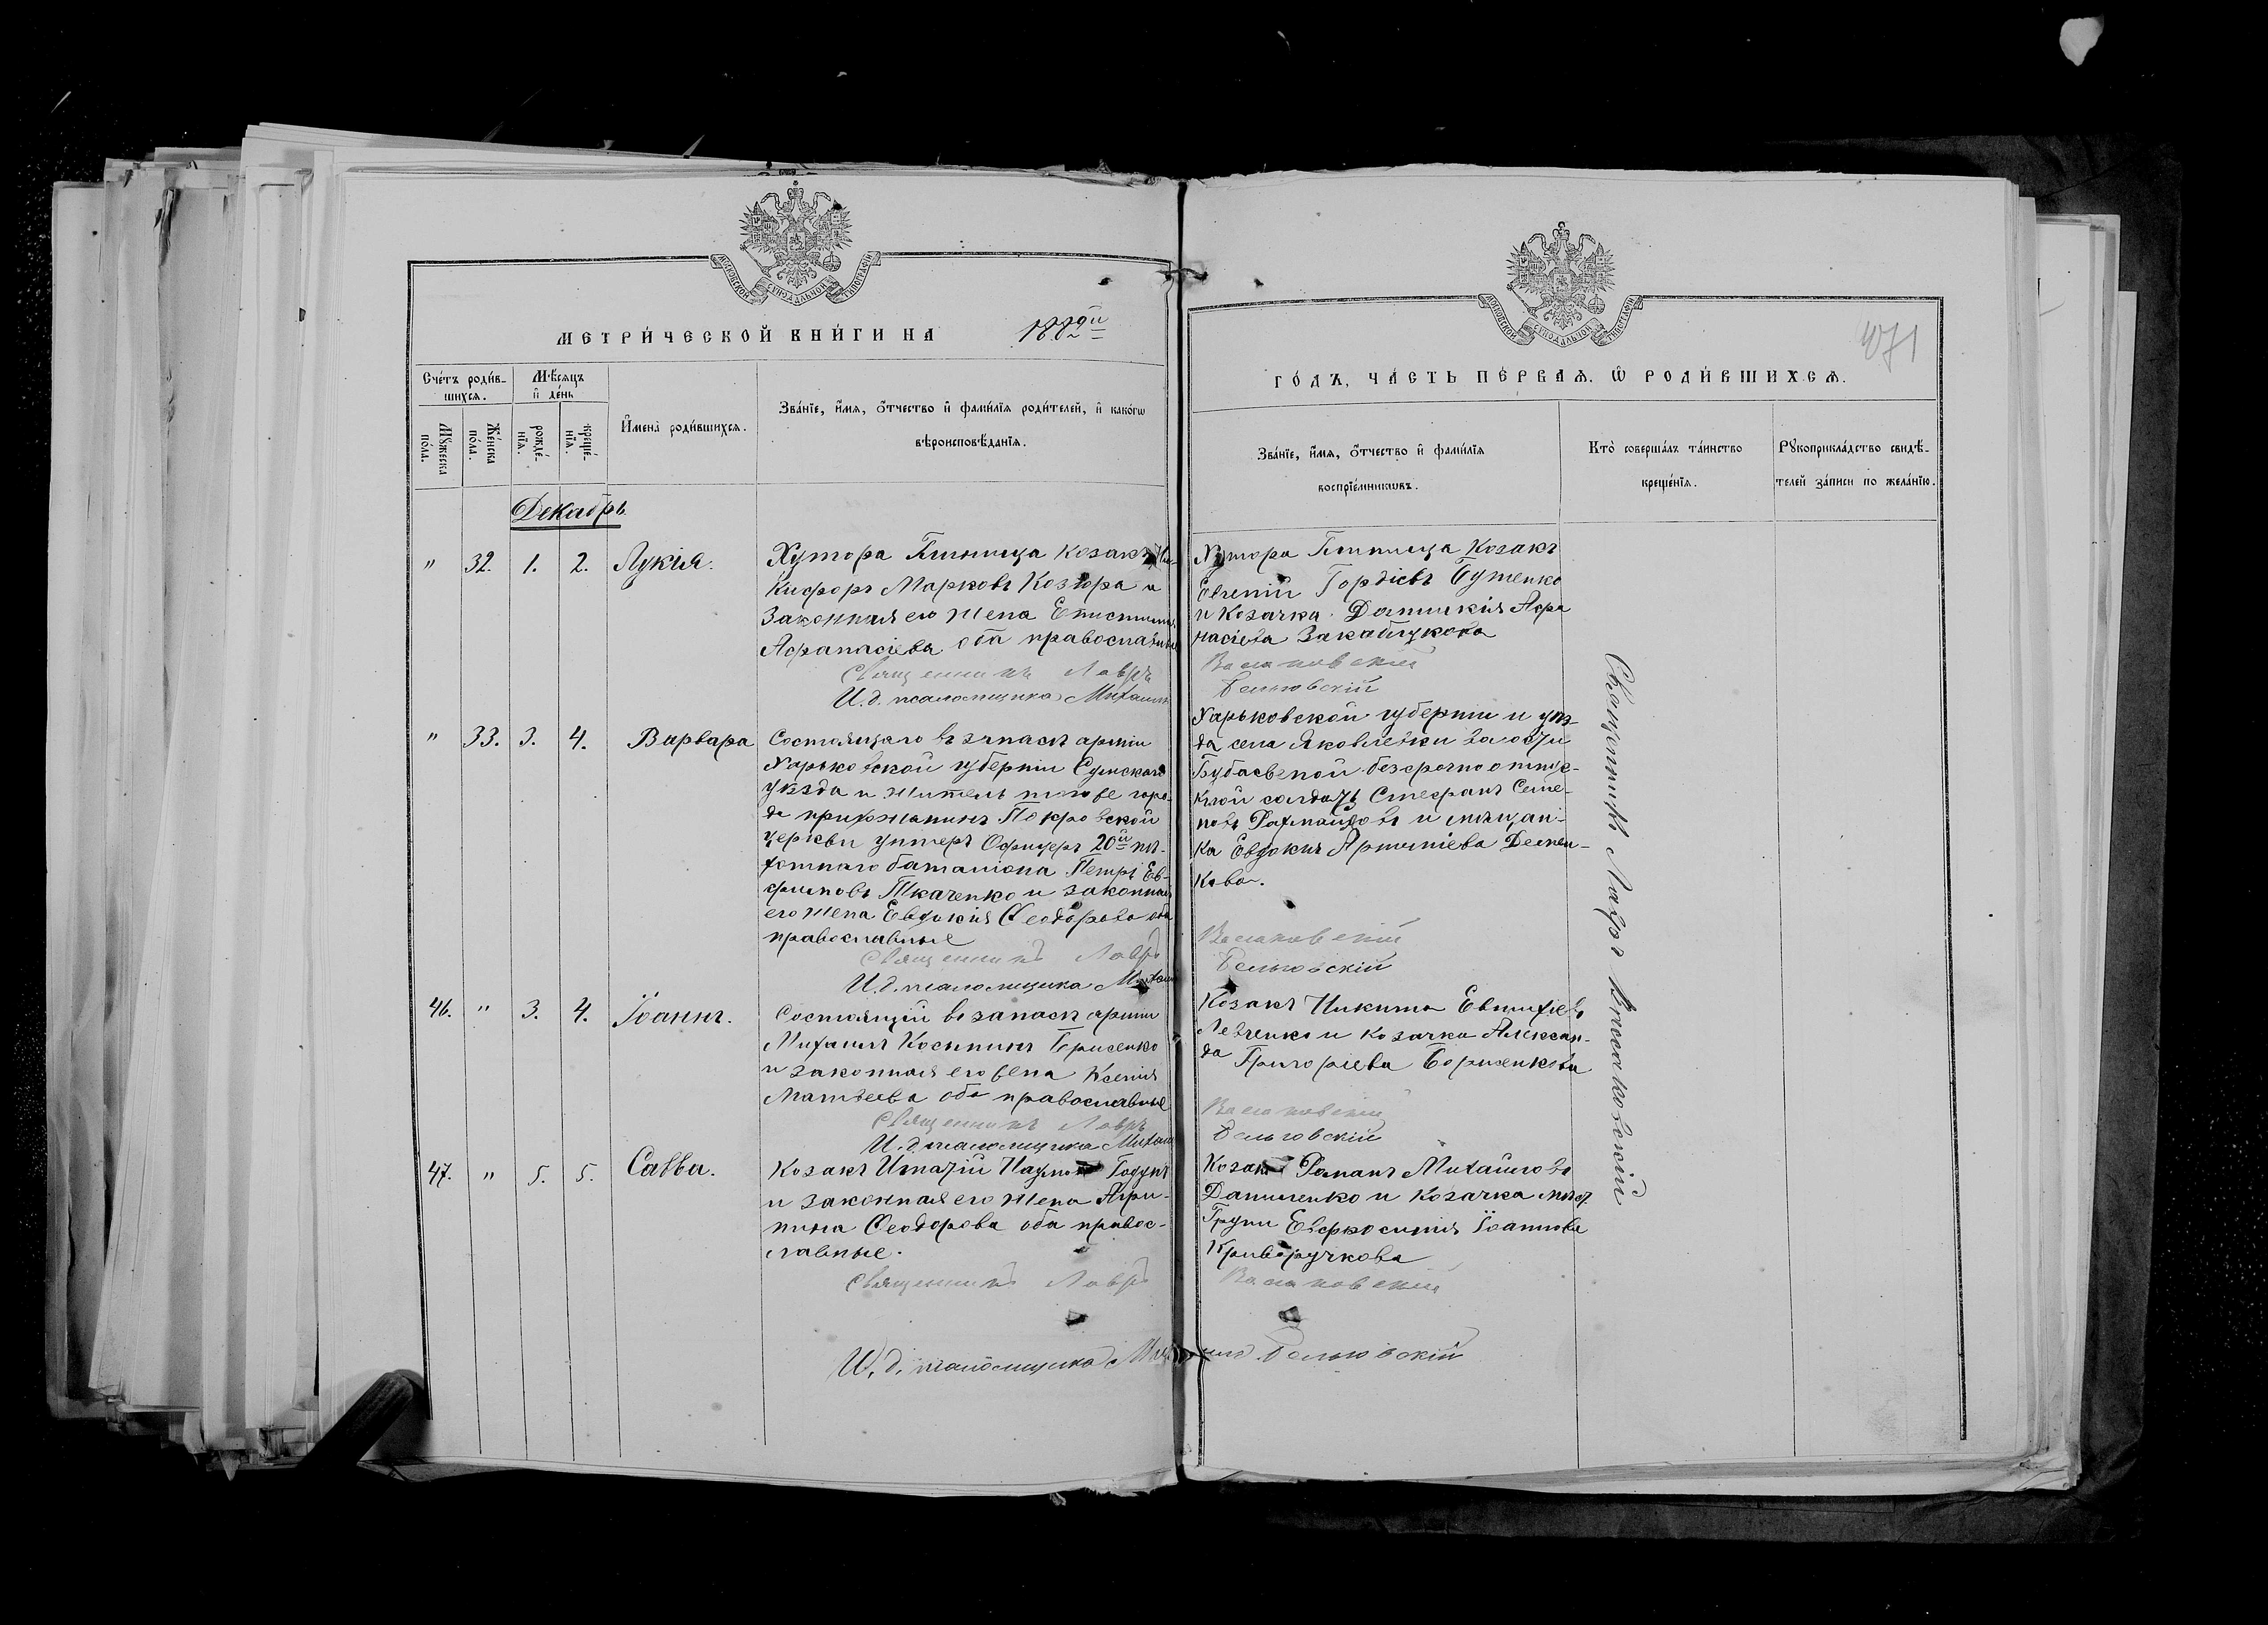 МОСКОВСКОЙ СѴНОДАЛЬНОЙ ТИПОГРАФІИ
МЕТРИ́ЧЕСКОЙ КНИ́ГИ НА 1882й
Сче́тъ роди́в-
шихсѧ.
Мѣ́сѧцъ
и҆ де́нь
Мꙋ́жеска
по́ла.
Же́нска
по́ла.
рожде́-
нїѧ.
креще́-
нїѧ.
И҆мена̀ роди́вшихсѧ.
Зва́нїе, и҆́мѧ, ѻ҆́тчество и҆ фами́лїѧ роди́телей, и҆ како́гѡ
вѣроисповѣ́данїѧ.
Декабрь
" 32. 1. 2. Лукія.
Хутора козакъ Ни-
кифоръ Марковъ Козюра и
законная его жена Епистимія
Афанасіева оба православные
Священникъ Лавръ
И.д. псаломщика Михаилъ
" 33. 3. 4. Варвара
Состоящаго въ запасѣ арміи
Харьковской губерніи Сумскаго
уѣзда и житель того же горо-
да прихожанинъ Покровской
церкви унтеръ Офицеръ 20й пѣ-
хотнаго баталіона Петръ Ев-
фимовъ Ткаченко и законная
его жена Евдокія Ѳеодорова оба
православные
Священникъ Лавръ
И.д. псаломщика Михаилъ
46. " 3. 4. Іоаннъ.
Состоящій въ запасѣ арміи
Михаилъ Борисенко
и законная его жена Ксенія
Матвеева оба православные
Священникъ Лавръ
И.д. псаломщика Михаилъ
47. " 5. 5. Савва.
Козакъ Игнатій Наумовъ Годунъ
и законная его жена Агри-
пина Ѳеодорова оба правос-
лавные.
Священникъ Лавръ
И.д. псаломщика Михаилъ
МОСКОВСКОЙ СѴНОДАЛЬНОЙ ТИПОГРАФІИ
471
ГО́ДЪ, ЧА́СТЬ ПЕ́РВАѦ. Ѡ҆ РОДИ́ВШИХСѦ.
Зва́нїе, и҆́мѧ, ѻ҆́тчество и҆ фами́лїѧ
воспрїе́мникѡвъ.
Кто̀ соверша́лъ та́инство
креще́нїѧ.
Рꙋкоприкла́дство свидѣ́-
телей за́писи по жела́нїю.
Хутора Козакъ
Евгеній Гордіевъ Бутенко
и Козачка Домникія Афа
насіева Закаблукова
Бельговскій
Харьковской губерніи и уѣз-
да села Яковлевки волости
безсрочно отпус-
кной солдатъ Стефанъ Семе-
новъ и мѣщан-
ка Евдокія
кова.
Бельговскій
Козакъ Никита Евтихіевъ
Левченко и козачка Алексан-
да Григоріева Борисенкова
Бельговскій
Козакъ Романъ Михайловъ
Даниленко и Козачка мѣст.
Груни Евфросинія Іоаннова
Криворучкова
Бельговскій
Священникъ Лавръ